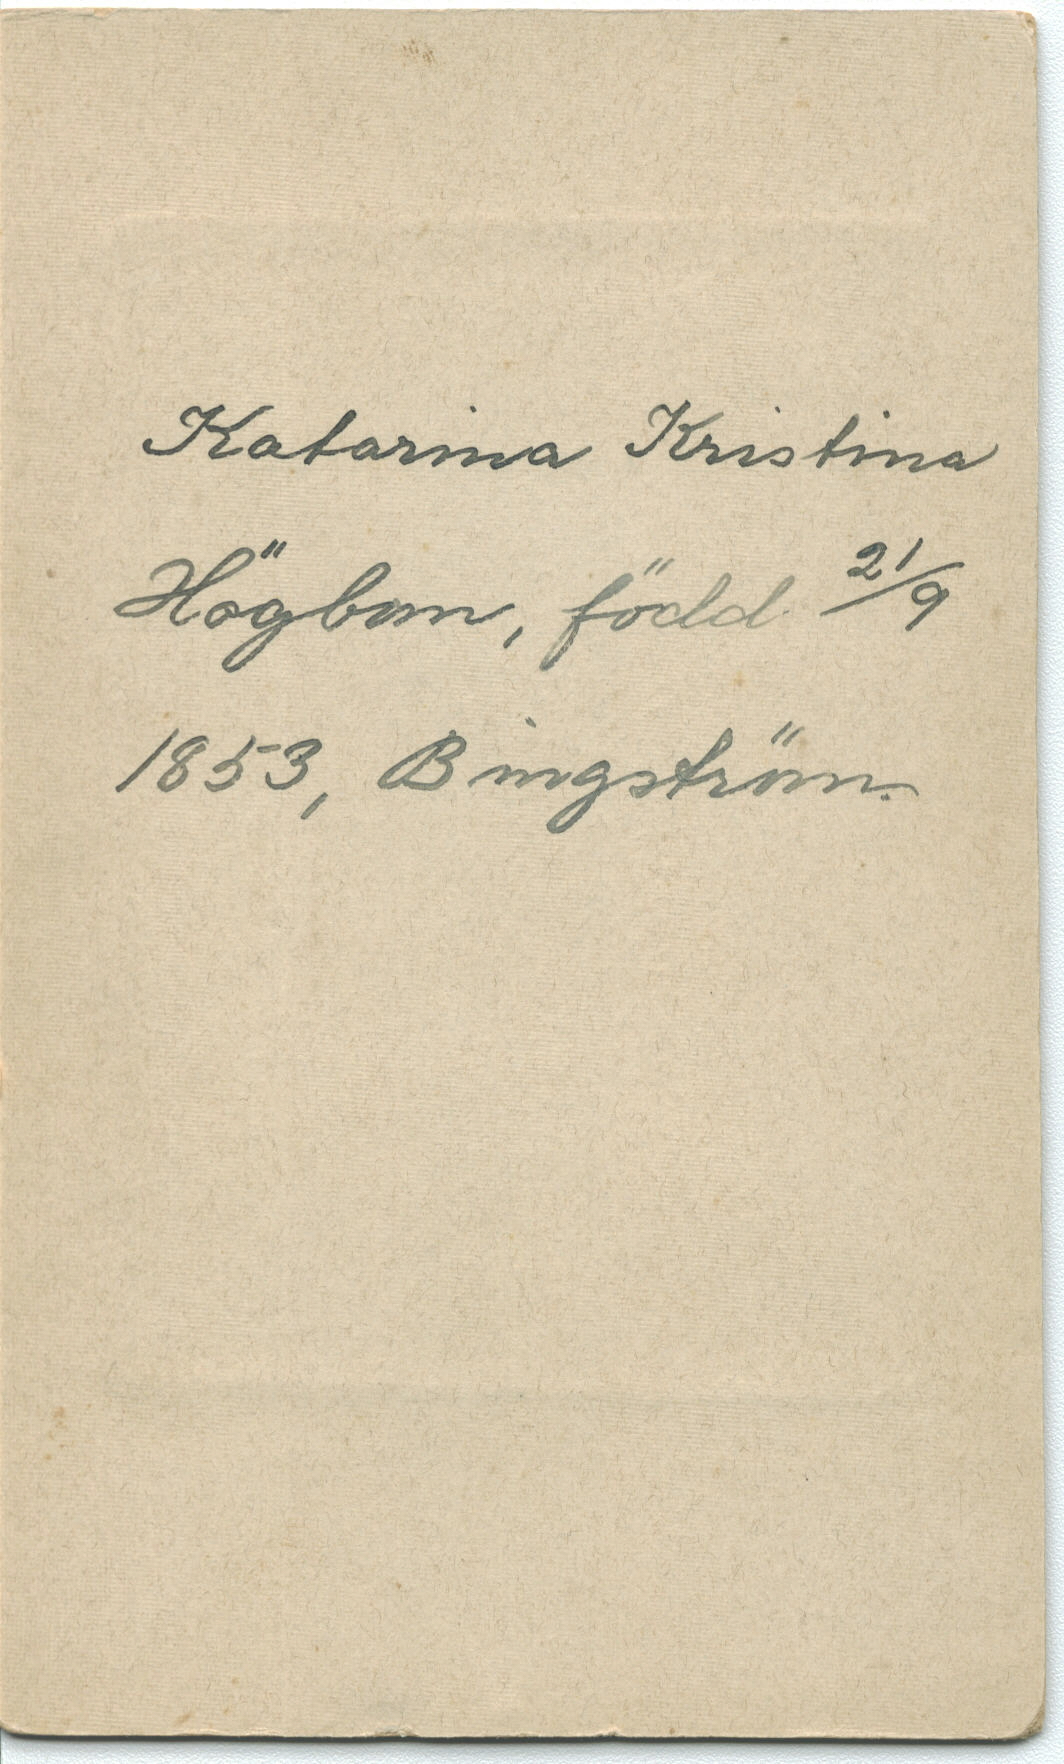 Katarina Kristina
Högbom, född 21/9
1853, Bingström.